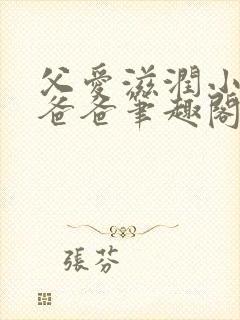 父愛滋潤小
爸爸筆趣閣
張芬